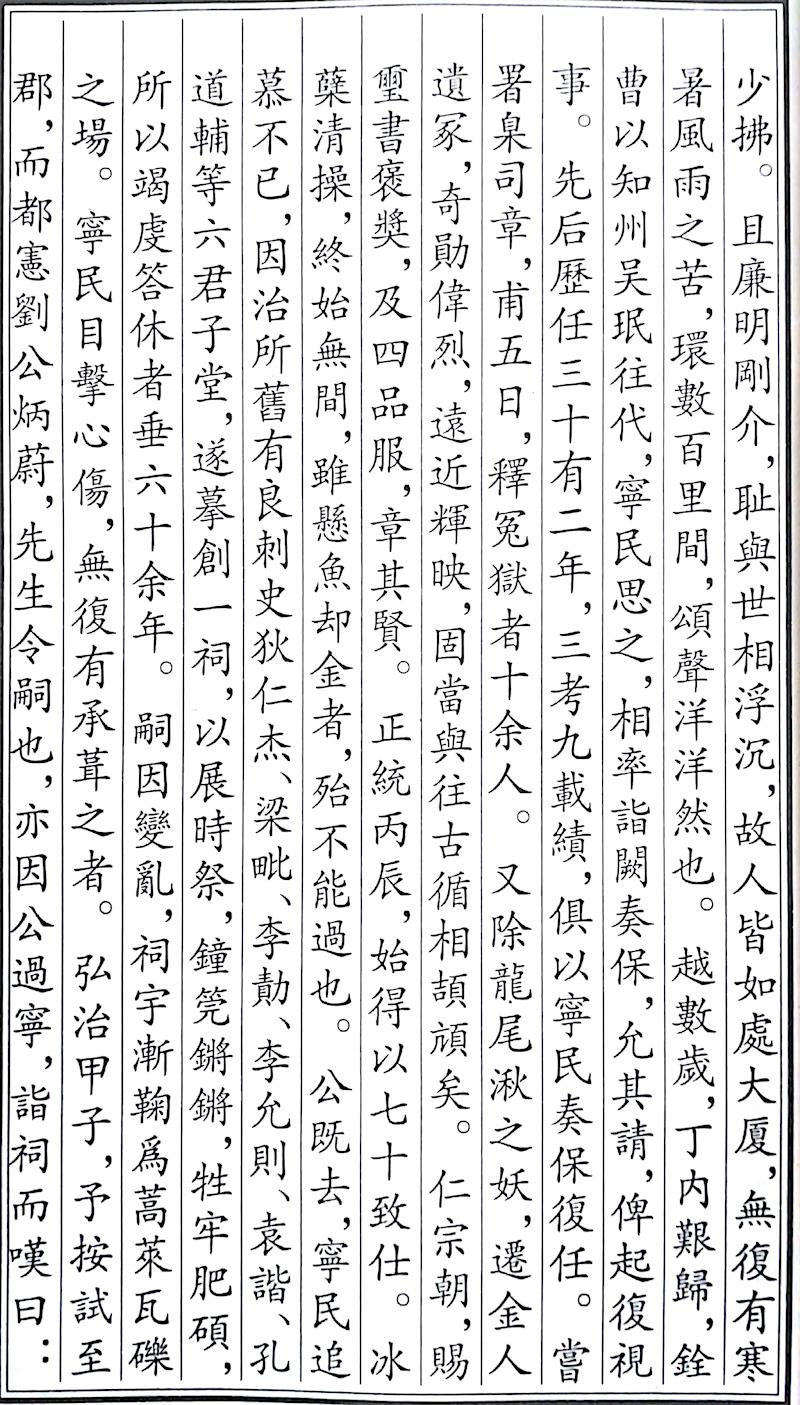 少拂。且廉明剛介，耻與世相浮沉，故人皆如處大厦，無復有寒
暑風雨之苦，環數百里間，頌聲洋洋然也。越數歲，丁内艱歸，銓
曹以知州吴珉往代，寧民思之，相率詣闕奏保，允其請，俾起復視
事。先后歷任三十有二年，三考九載績，俱以寧民奏保復任。嘗
署臬司章，甫五日，釋冤獄者十余人。又除龍尾湫之妖，遷金人
遺冢，奇勛偉烈，遠近輝映，固當與往古循相頡頏矣。仁宗朝，賜
璽書褒獎，及四品服，章其賢。正統丙辰，始得以七十致仕。冰
蘖清操，終始無間，雖懸魚却金者，殆不能過也。公既去，寧民追
慕不已，因治所舊有良刺史狄仁杰、梁毗、李勣、李允則、袁諧、孔
道輔等六君子堂，遂摹創一祠，以展時祭，鐘筦鏘鏘，牲牢肥碩，
所以竭虔答休者垂六十余年。嗣因變亂，祠宇漸鞠爲蒿萊瓦礫
之場。寧民目擊心傷，無復有承葺之者。弘治甲子，予按試至
郡，而都憲劉公炳蔚，先生令嗣也，亦因公過寧，詣祠而嘆曰：